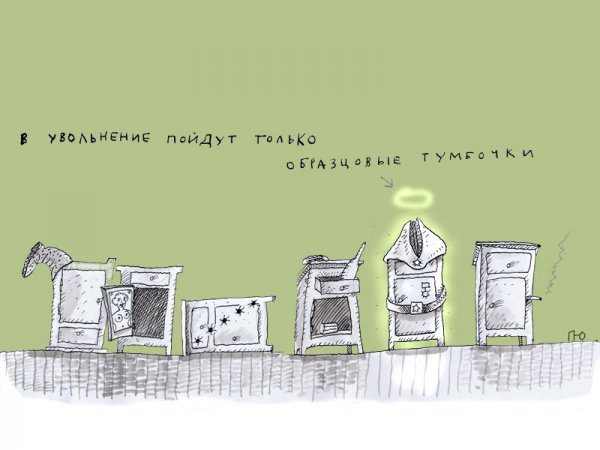 В УВОЛЬНЕНИЕ ПОЙДУТ ТОЛЬКО
ОБРАЗЦОВЫЕ ТУМБОЧКИ